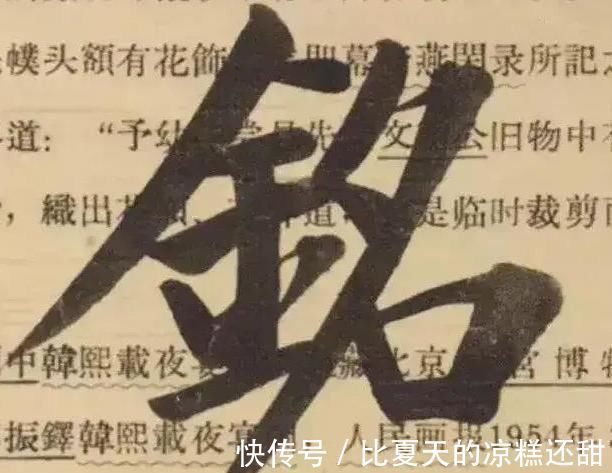 銘
幞头額有花飾 燕閑录所記
道：“予幼 先文 公旧物中
，織出花 道 是临时裁剪
中韓熙載夜 北京 宮博物
振鐸韓熙載夜宴 人民画报1954年
快传号 / 比夏天的凉糕还甜